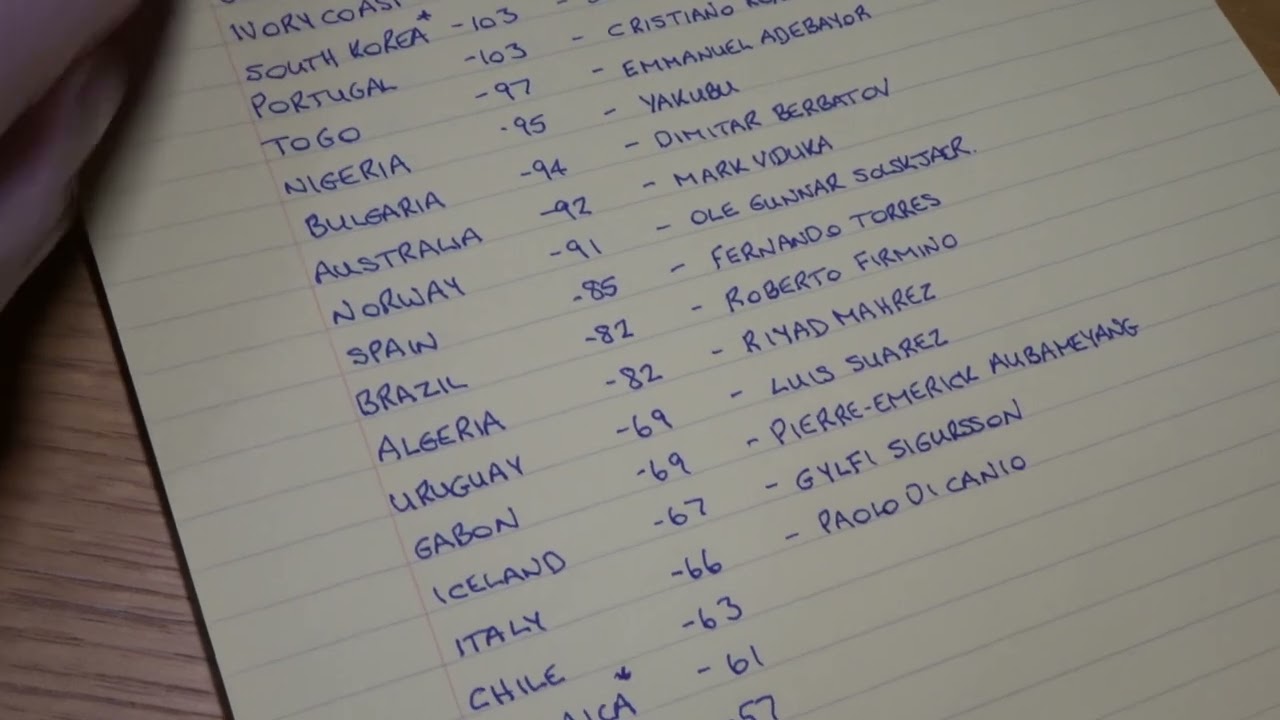 IVORY COAST
SOUTH KOREA * -103
PORTUGAL -103 - CRISTIANO
TOGO -97 - EMMANUEL ADEBAYOR
NIGERIA -95 - YAKUBU
BULGARIA -94 - DIMITAR BERBATOV
AUSTRALIA -92 - MARK VIDUKA
NORWAY -91 - OLE GUNNAR SOLSKJAER.
SPAIN -85 - FERNANDO TORRES
BRAZIL -82 - ROBERTO FIRMINO
ALGERIA -82 - RIYAD MAHREZ
URUGUAY -69 - LUIS SUAREZ
GABON -69 - PIERRE-EMERICK AUBAMEYANG
ICELAND -67 - GYLFI SIGURSSON
ITALY -66 - PAOLO DI CANIO
CHILE -63
* -61
-57